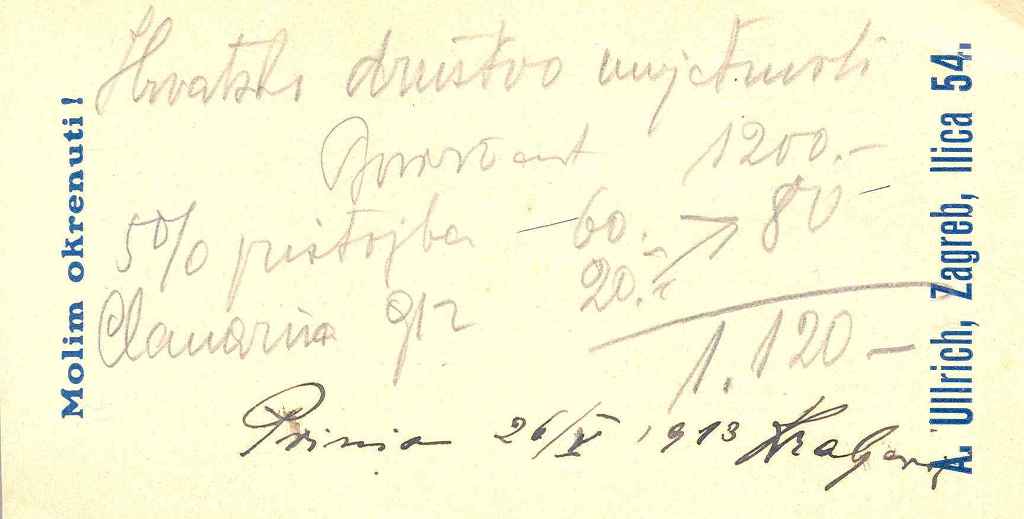 Molim okrenuti!
Hrvatsko društvo umjetnosti
1200.–
5% pristojba – 60.– → 80 –
Clanarina 20.–
1.120 –
Primio 26/V 1913 Kraljević
A. Ullrich, Zagreb, Ilica 54.